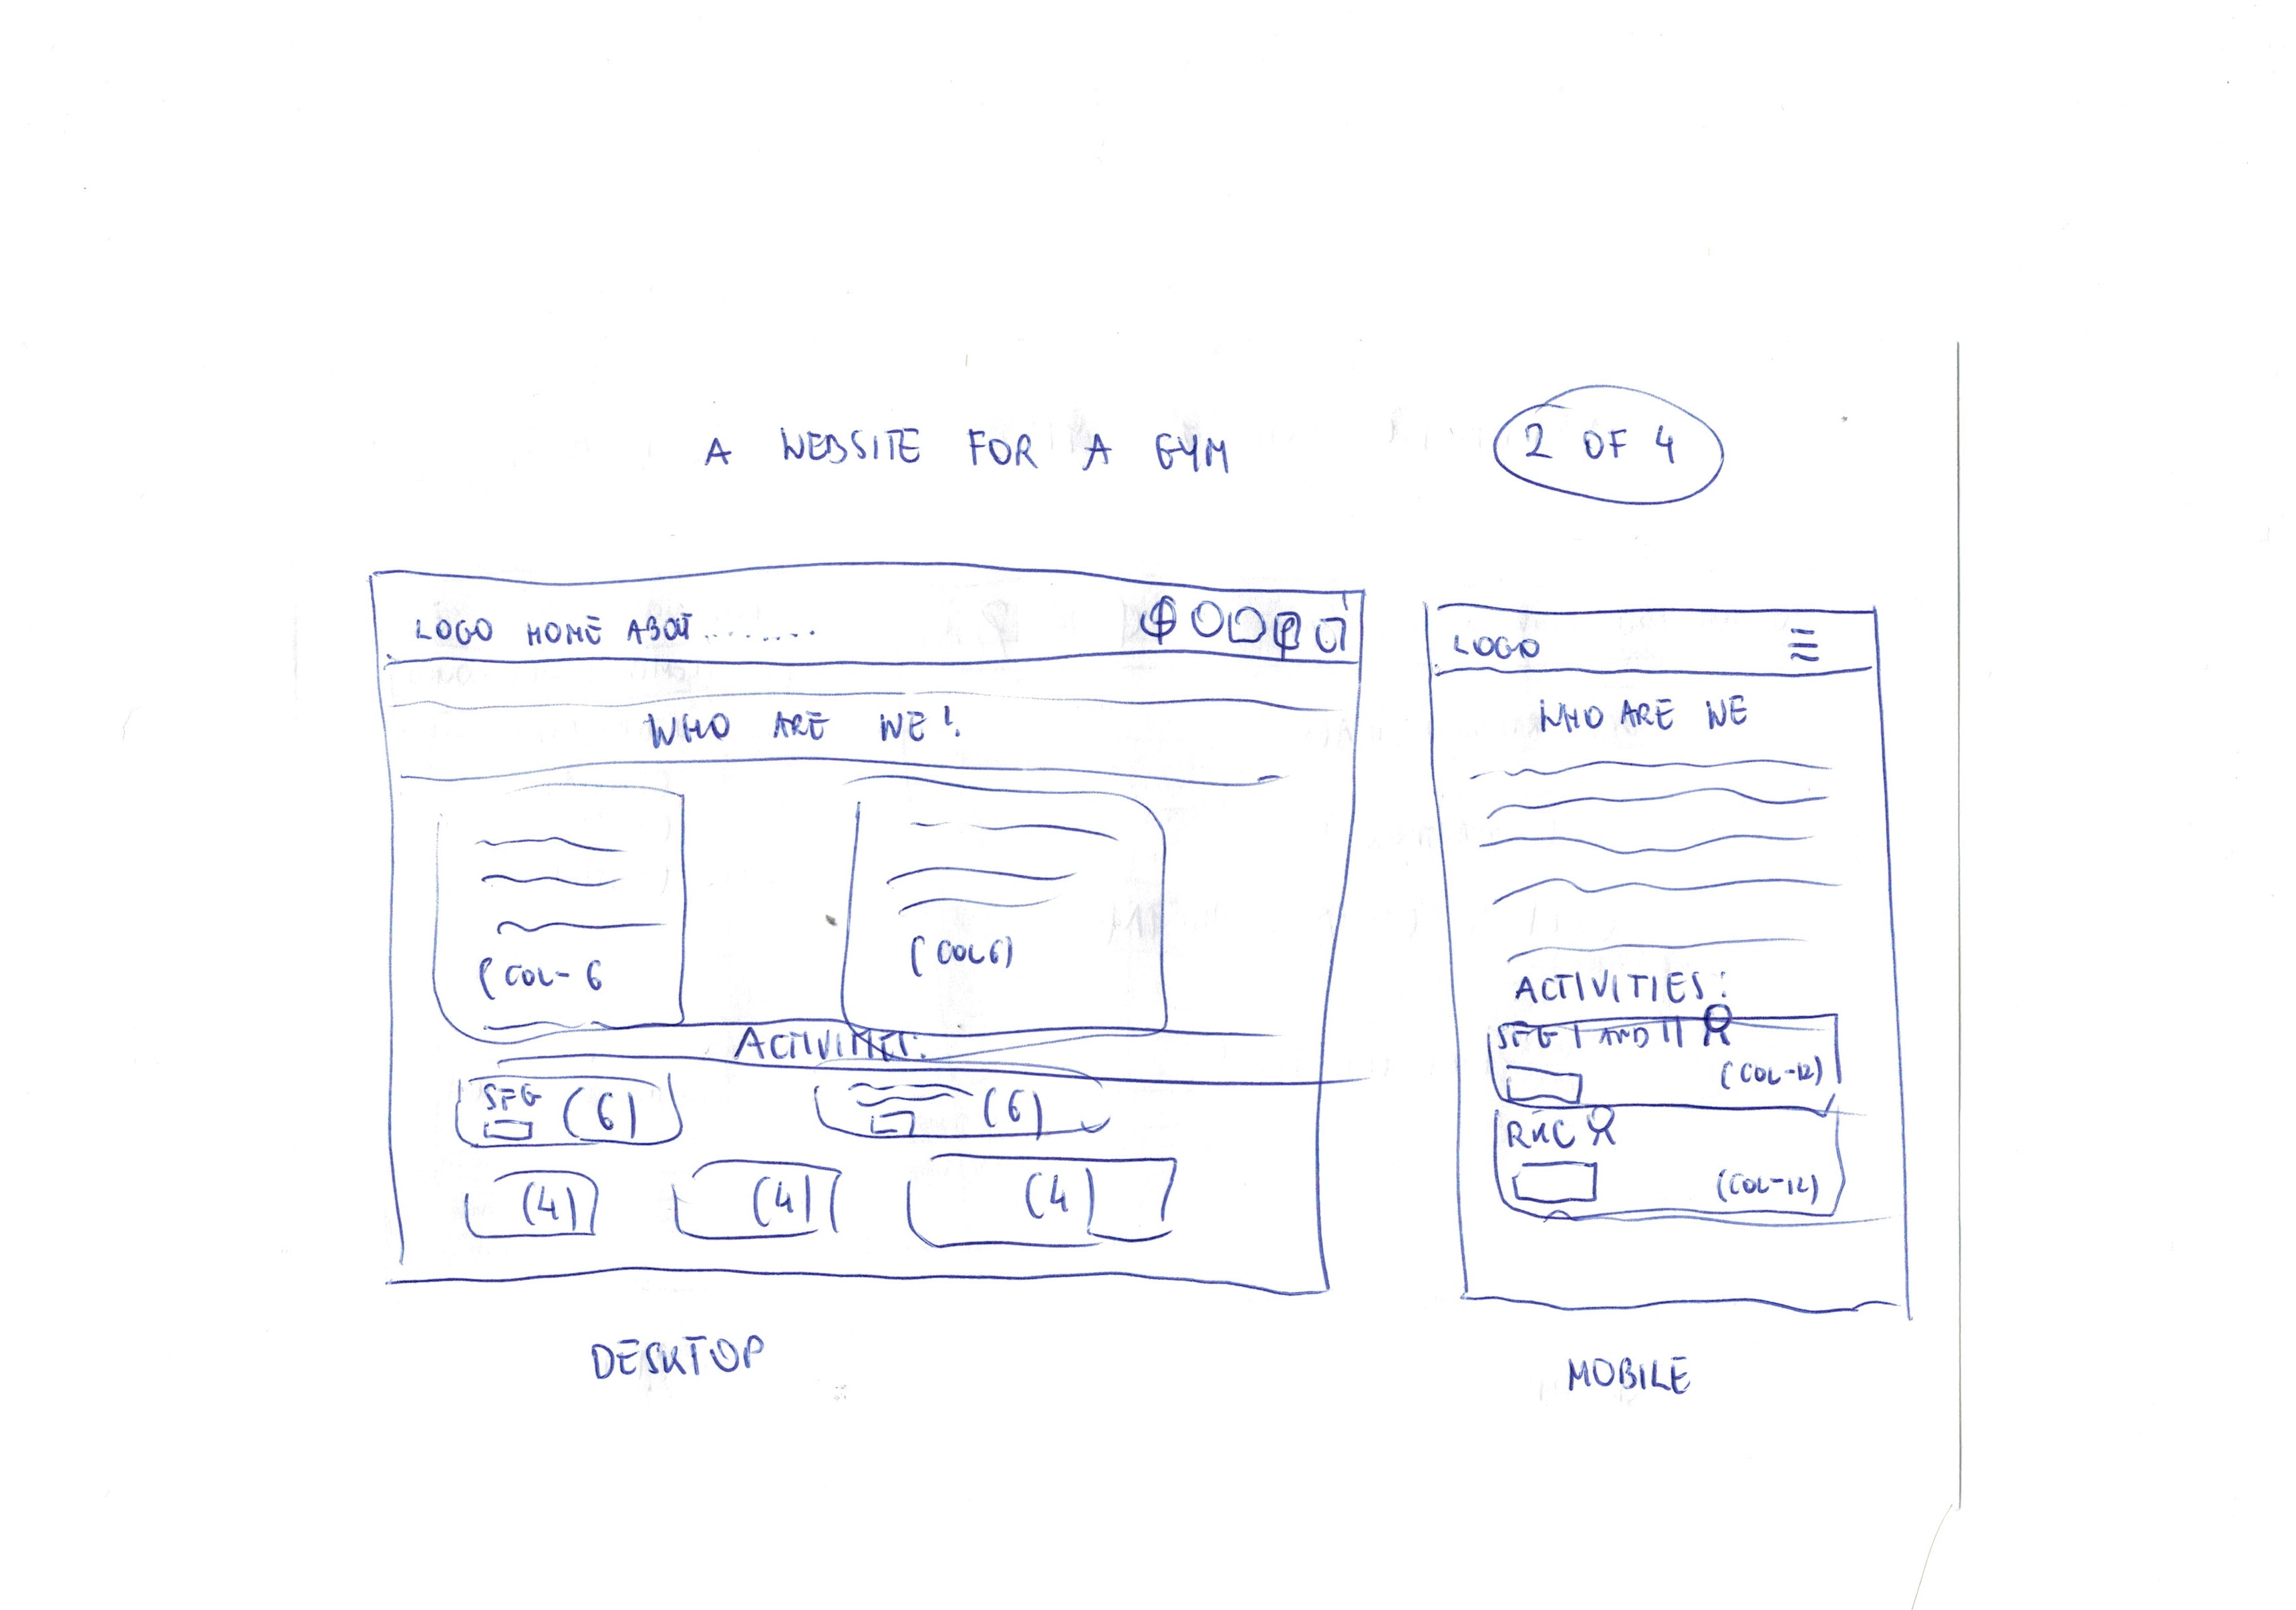 A WEBSITE FOR A GYM
2 OF 4
LOGO HOME ABOUT........
WHO ARE WE!
(COL-6
(COL6)
ACTIVITIES:
SFG (6)
(6)
(4)
(4)
(4)
DESKTOP
LOGO
WHO ARE WE
ACTIVITIES:
SFG I AND II
(COL-12)
RKC
(COL-12)
MOBILE